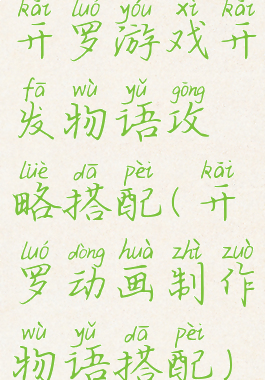 kāi luó yóu xì kāi
开罗游戏开
fā wù yǔ gōng
发物语攻
lüè dā pèi kāi
略搭配(开
luó dòng huà zhì zuò
罗动画制作
wù yǔ dā pèi
物语搭配)